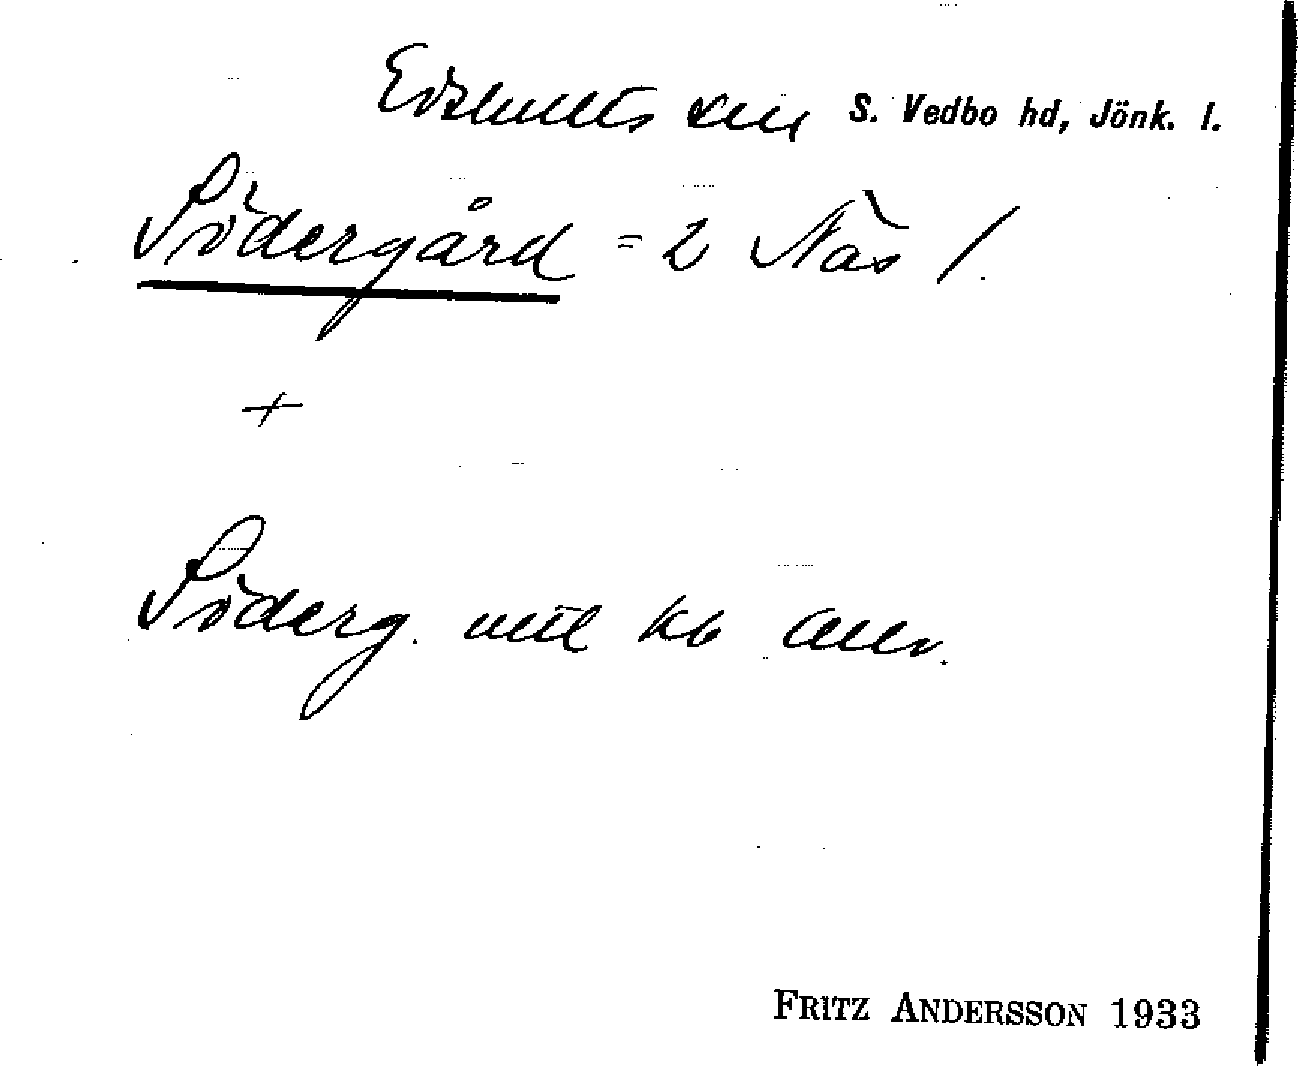 Edshults sn S. Vedbo hd, Jönk. l.
Södergård = 2 Näs /.
+
Söderg. utl kb
FRITZ ANDERSSON 1933